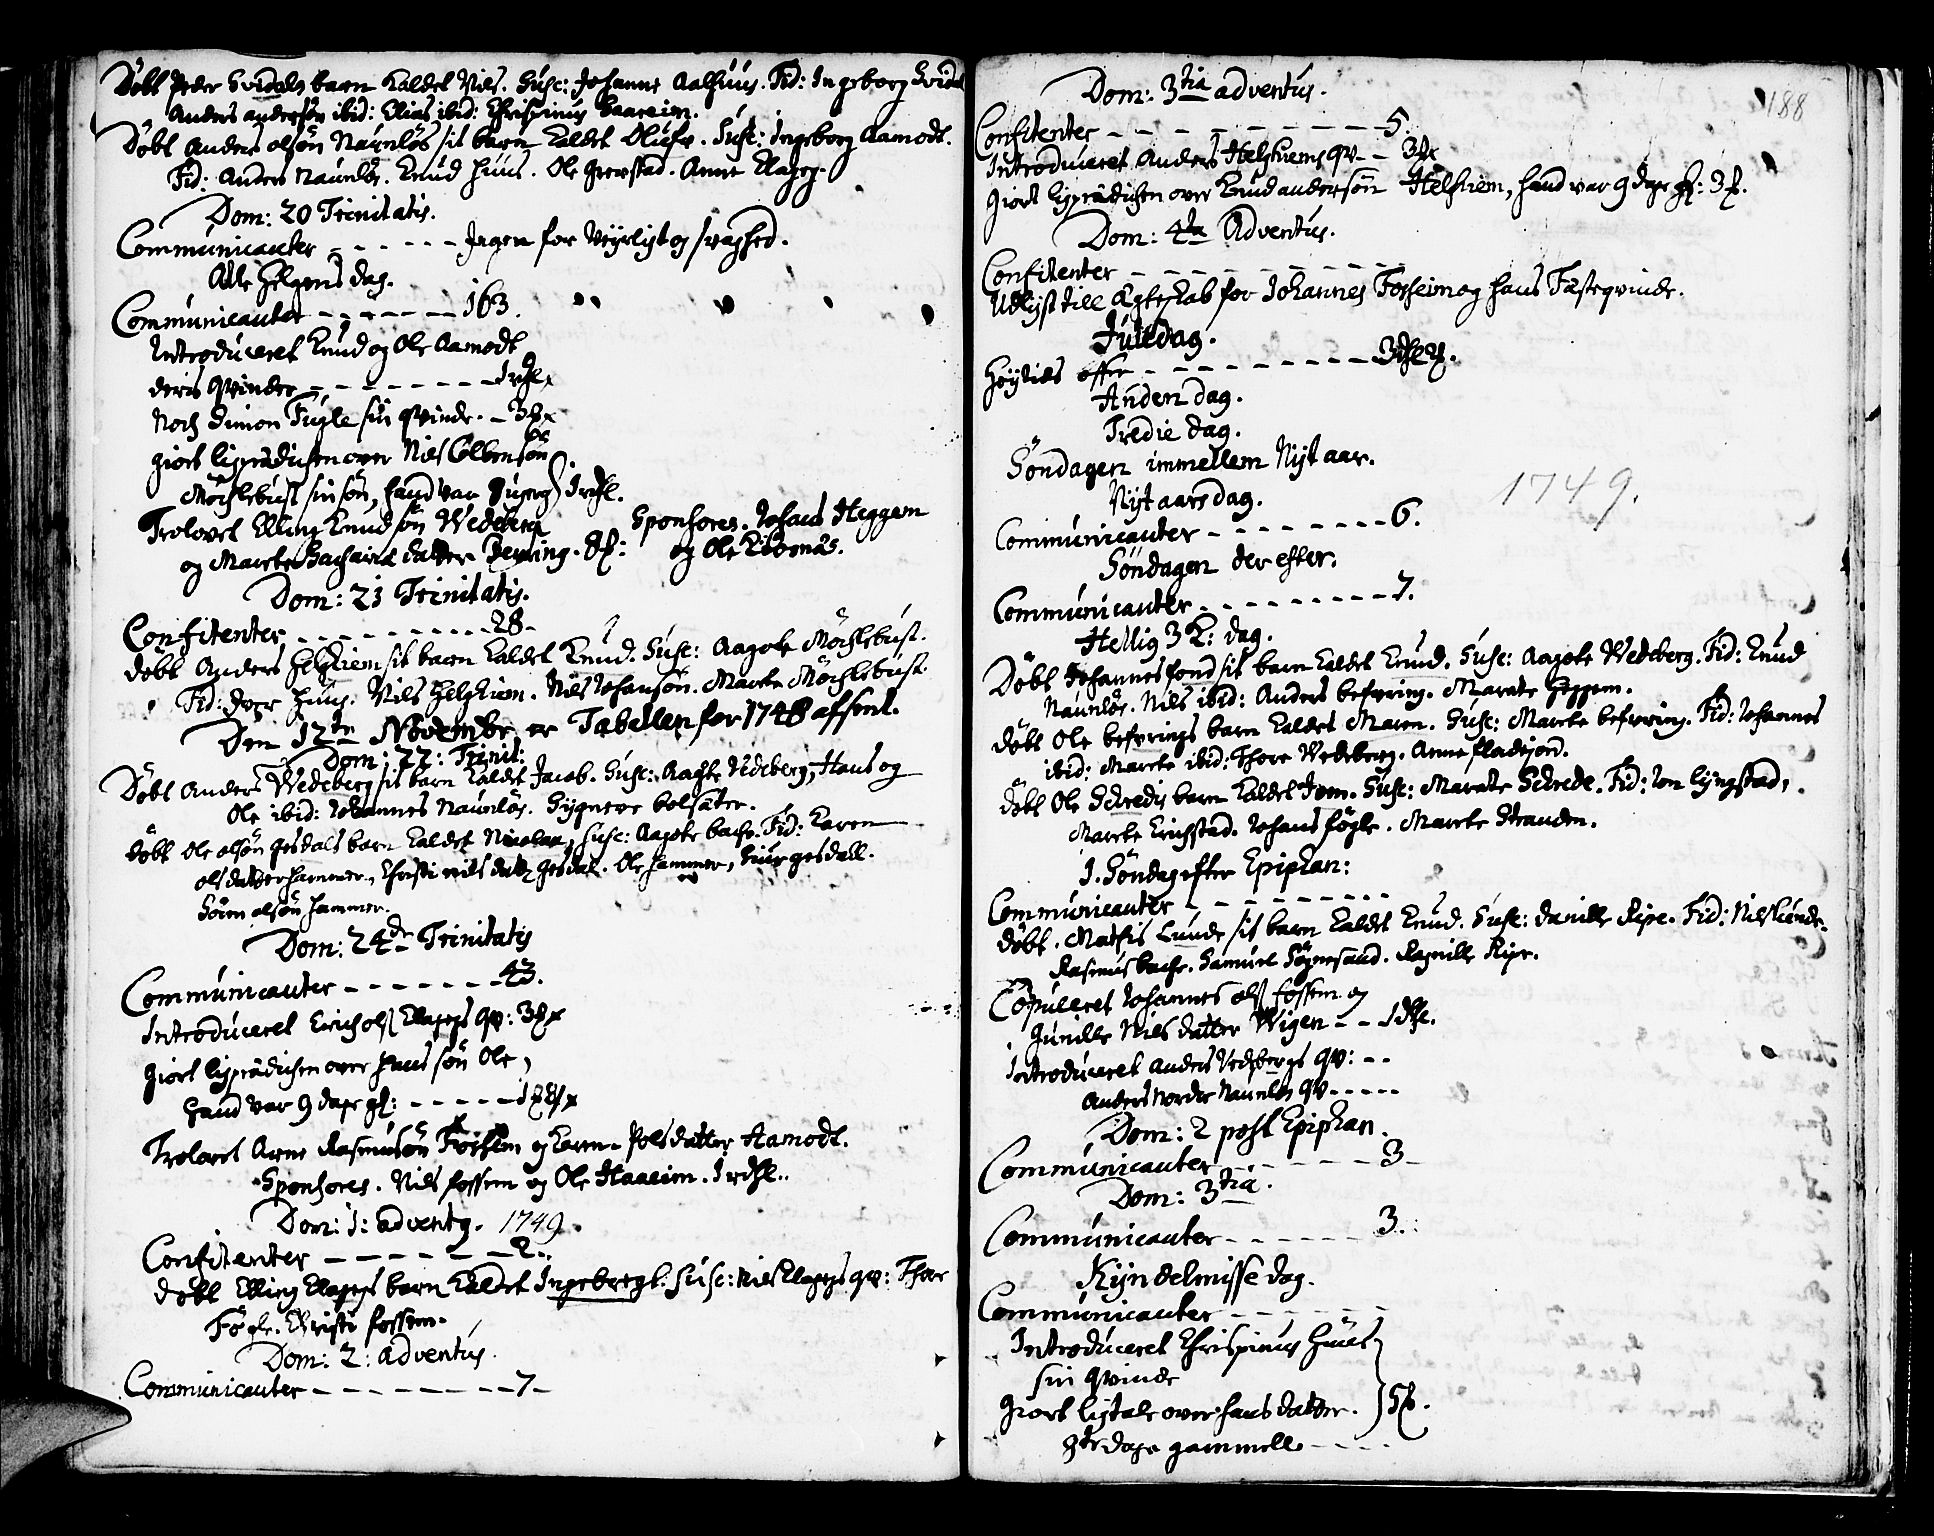 Döbt Peder Hvidals barn kaldet Nils. Susc: Johanne Aalhuus. Fid: Ingeborg Hvidal
Anders andersön ibid: Elias ibid: Chrispinus Haaheim.
Döbt Anders olsön Naunlös sit barn kaldet Oluffr. Susc: Ingeborg Aamodt.
Fid: Anders Naunlös. Knud Huus. Ole Grevstad. Anne Klageg.
Dom: 20 Trinitatis.
Communicanter - - - - - - Ingen for Veyrligt og svaghed.
Alle Helgens dag.
Communicanter - - - - - - 163.
Introduceret Knud og Ole Aamodt
deris qvinder - - - - - - - - 1 rdl.
Noch Simon Fugle sin qvinde. - 3
giort ligprædichen over Nils Colbensön
Möchlebust sin sön, hand var 8 uger 1 rdl.
Trolovet Elling Knudsön Wedeberg Sponsores. Johans Heggem
og Marete Zachariæ datter og Ole Kibsnæs.
Dom: 21 Trinitatis.
Confitenter - - - - - - - - - - 28 -
döbt Anders Helsiem sit barn kaldet Knud. Susc: Aagote Möchlebust.
Fid: Iver Huus. Nils Helshiem. Nils Johansön. Marete Möchlebust.
Den 12te Novembr. er Tabellen for 1748 afsent.
Dom: 22: Trinit:
Döbt Anders Wedeberg sit barn kaldet Jacob. Susc: Aagote Wedeberg, Hans og
Ole ibid: Johannes Naunlös. Sygneve bolsæter.
döbt Ole olsön gisdals barn kaldet Nicolaa, Susc: Aagote bache. Fid: Karen
olsdatter hammer, Christi nils datter gisdal. Ole hammer, Siur gesdall.
Sören olsön hammer.
Dom: 24de Trinitatis
Communicanter - - - - - - - 43.
Introduceret Erich ols. Klages qv: 3
giort ligprædichen over hans sön Ole,
hand var 9 dage gl: - - - - - - 1
Trolovet Arne Rasmusön Forshem og Karen Polsdatter Aamodt.
Sponsores. Nils fossem og Ole Haaeim. 1 rdl..
Dom: 1: adventg. 1749.
Confitenter - - - - - - - 2..
döbt Elling Klages barn kaldet Ingebregt. Susc: Nils Klages qv: Thore
Fögle. Christi fossem.
Dom: 2: adventus.
Communicanter - - - - - - - - - 7 -
188
Dom: 3tia adventus.
Confitenter - - - - - - - - - 5.
Introduceret Anders Helshiems qv - - 3
giort ligprædichen over Knud andersön Helshiem, hand var 9 dage gl: 3
Dom: 4ta Adventus.
Confitenter - - - - - - - - - -
Udlyst till Ægteskab for Johannes Fosheim og hans Fæsteqvinde.
Juledag.
Höytids offer - - - - - - - - - 3 dl
Anden dag.
Tredie dag.
Söndagen immellem Nyt aar.
1749.
Nyt aars dag.
Communicanter - - - - - - - - 6.
Söndagen der efter.
Communicanter - - - - - - - - - 7.
Hellig 3 K: dag.
Döbt Johannes fond sit barn kaldet Knud. Susc: Aagote Wedeberg. Fid: Knud
Naunlös. Nils ibid: Anders befring. Marete Heggem.
döbt Ole befrings barn kaldet Maren. Susc: Marete befring. Fid: Johannes
ibid: Marete ibid: Thore Wedeberg. Anne fladejord.
döbt Ole Schredis barn kaldet Jom. Susc: Marete Schrede. Fid: Jon lyngstad,
Marete Erichstad. Johans fögle. Marete Stranden.
1. Söndag efter Epiphan:
Communicanter - - - - - - - - -
döbt. Mathis Lunde sit barn kaldet Knud. Susc: danille Ripe. Fid: Nils Lunde.
Rasmus bache. Samuel Sögnesand. Ragnille Ripe.
Copuleret Johannes ols. fossem og
Gunille Nils datter Wigen - - 1 dl.
Introduceret Anders Vedebergs qv: - -
Anders Nordre Naunlös qv - - - - -
Dom: 2 post Epiphan.
Communicanter - - - - - - 3 -
Dom: 3tia.
Communicanter - - - - - - 3.
Kyndelmisse dag.
Communicanter - - - - - -
Introduceret Chrispinus Huus
sin qvinde
giort ligtale over hans datter. 5
8te dage gammell - - - -